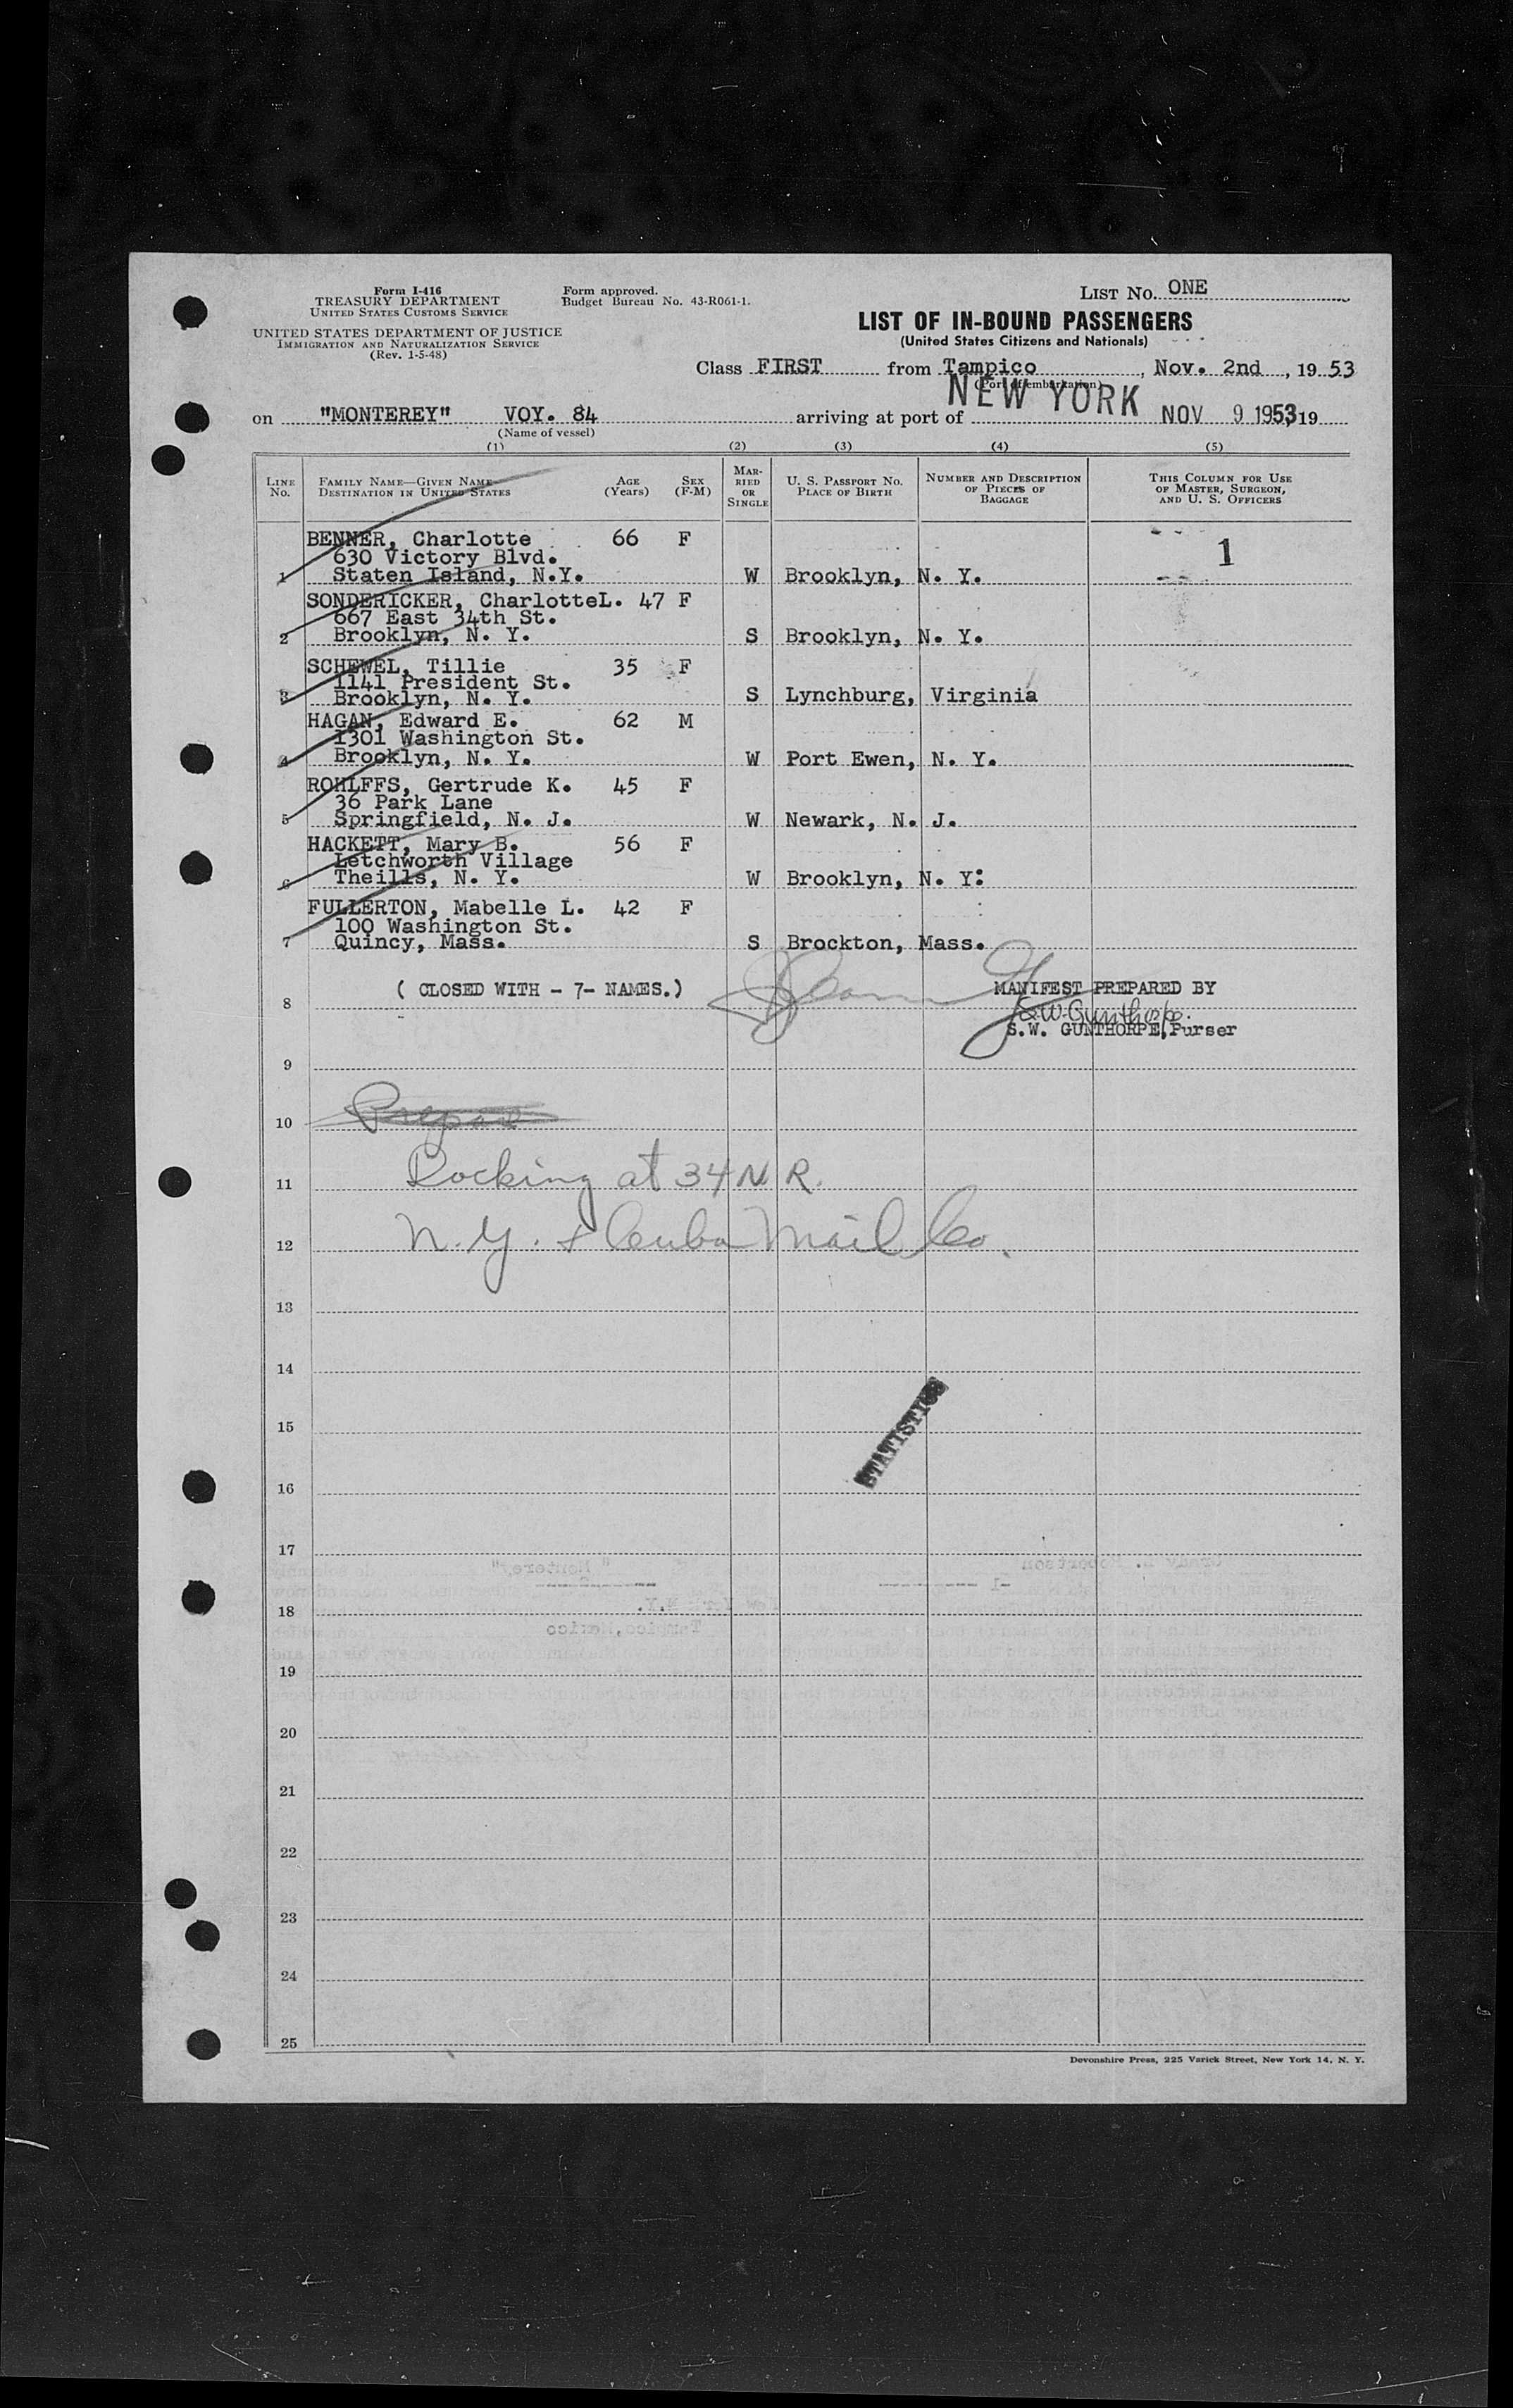 Form I-416
TREASURY DEPARTMENT
UNITED STATES CUSTOMS SERVICE
UNITED STATES DEPARTMENT OF JUSTICE
IMMIGRATION AND NATURALIZATION SERVICE
(Rev. 1-5-48)
Form approved.
Budget Bureau No. 43-R061-1.
LIST No. ONE
LIST OF IN-BOUND PASSENGERS
(United States Citizens and Nationals)
Class FIRST from Tampico, Nov. 2nd, 19 53
(Port of embarkation)
on "MONTEREY" VOY. 84 arriving at port of NEW YORK NOV 9 1953 19
(Name of vessel)
(1) (2) (3) (4) (5)
LINE No.
FAMILY NAME—GIVEN NAME
DESTINATION IN UNITED STATES
AGE (Years)
SEX (F-M)
MARRIED OR SINGLE
U. S. PASSPORT No.
PLACE OF BIRTH
NUMBER AND DESCRIPTION OF PIECES OF BAGGAGE
THIS COLUMN FOR USE OF MASTER, SURGEON, AND U. S. OFFICERS
BENNER, Charlotte 66 F 1
630 Victory Blvd.
1 Staten Island, N.Y. W Brooklyn, N. Y.
SONDERICKER, CharlotteL. 47 F
667 East 34th St.
2 Brooklyn, N. Y. S Brooklyn, N. Y.
SCHEWEL, Tillie 35 F
1141 President St.
3 Brooklyn, N. Y. S Lynchburg, Virginia
HAGAN, Edward E. 62 M
1301 Washington St.
4 Brooklyn, N. Y. W Port Ewen, N. Y.
ROHLFFS, Gertrude K. 45 F
36 Park Lane
5 Springfield, N. J. W Newark, N. J.
HACKETT, Mary B. 56 F
Letchworth Village
6 Theills, N. Y. W Brooklyn, N. Y:
FULLERTON, Mabelle L. 42 F
100 Washington St.
7 Quincy, Mass. S Brockton, Mass.
8 ( CLOSED WITH - 7- NAMES.) MANIFEST PREPARED BY
S.W. Gunthorpe.
S.W. GUNTHORPE, Purser
9
10 Prepare
11 Docking at 34 N R.
12 N. Y. & Cuba Mail Co.
13
14
STATISTICS
15
16
17
18
19
20
21
22
23
24
25
Devonshire Press, 225 Varick Street, New York 14, N. Y.